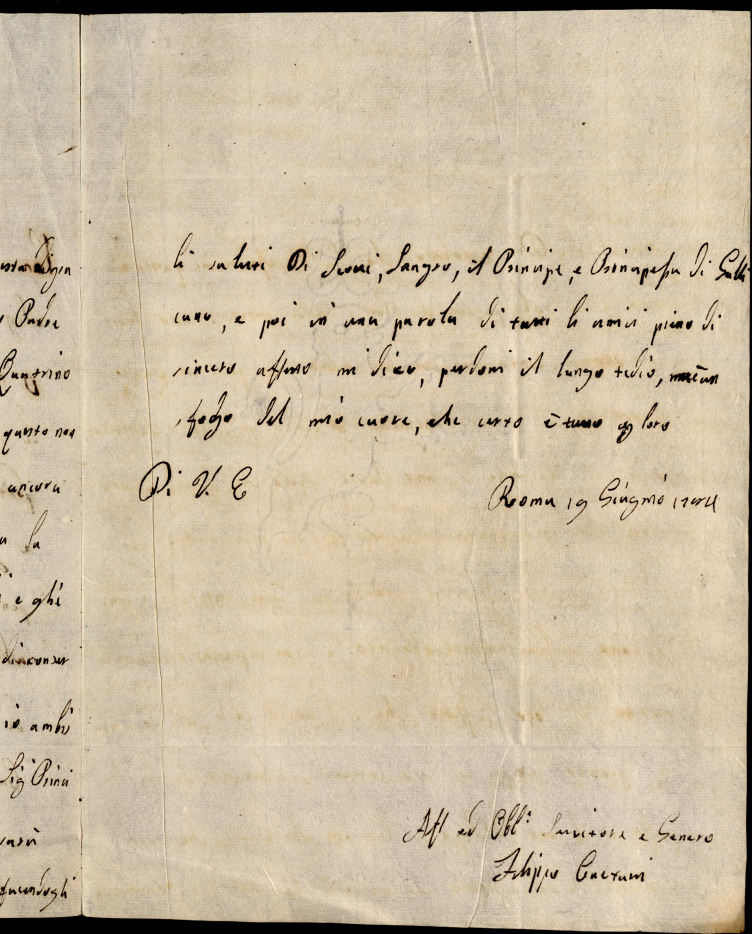 Padre
Quatrino
questo non
ancora
la
e ghi
diaconser
io ambi
Sig Princi
facendogli
li saluti Di Sangro, il Principe, e Principessa di Galli
cano, e poi in una parola di tutti li amici pieno di
sincero affetto mi dico, perdoni il lungo tedio, ma è un
sfogo del mio cuore, che certo è tutto loro
Di V. E
Roma 19 Giugno
Aff ed Obbl: Servitore e Genero
Filippo Caetani